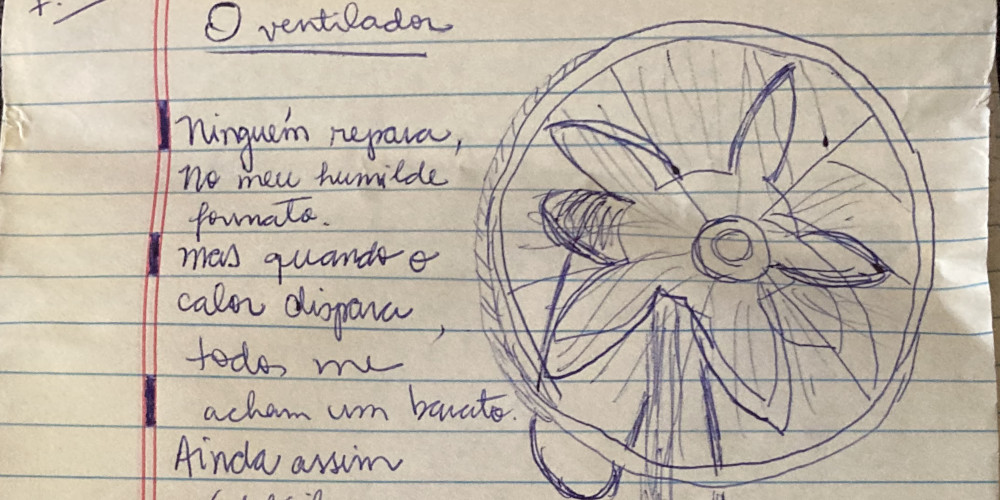 O ventilador
Ninguém repara,
no meu humilde
formato.
mas quando o
calor dispara,
todos me
acham um barato.
Ainda assim